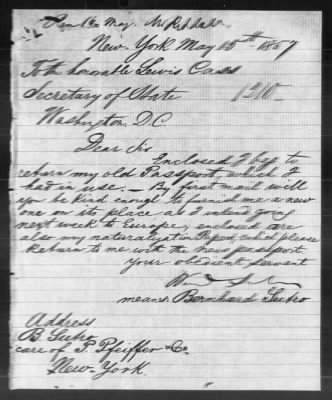 New-York May 15th 1857
To the honorable Lewis Cass
Secretary of State
1210
Washington, D.C.
Dear Sir
Enclosed I beg to
return my old Passport, which I
had in use. – By first mail will
you be kind enough to furnish me a new
one on its place as I intend going
next week to Europe, enclosed are
also my naturalization Papers, which please
Return to me with the new passport.
Your obedient servant
means Bernhard Sutro
Address
B. Sutro
care of P. Pfeiffer & Co.
New-York.